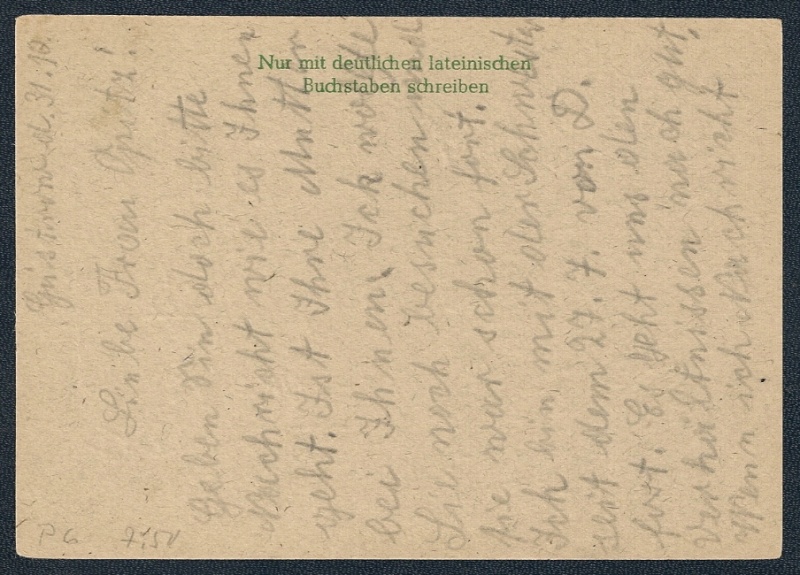 Nur mit deutlichen lateinischen
Buchstaben schreiben
Güstrow d. 31.10.
Liebe Frau
Geben Sie doch bitte
Nachricht wie es Ihnen
geht. Ist Ihre Mutter
bei Ihnen. Ich wollte
Sie noch besuchen und
Sie war schon fort.
Ich bin mit der Schwester
seit dem 27.7. von D.
fort. Es geht uns den
Verhältnissen nach gut,
Wenn ich Nachricht
P 6